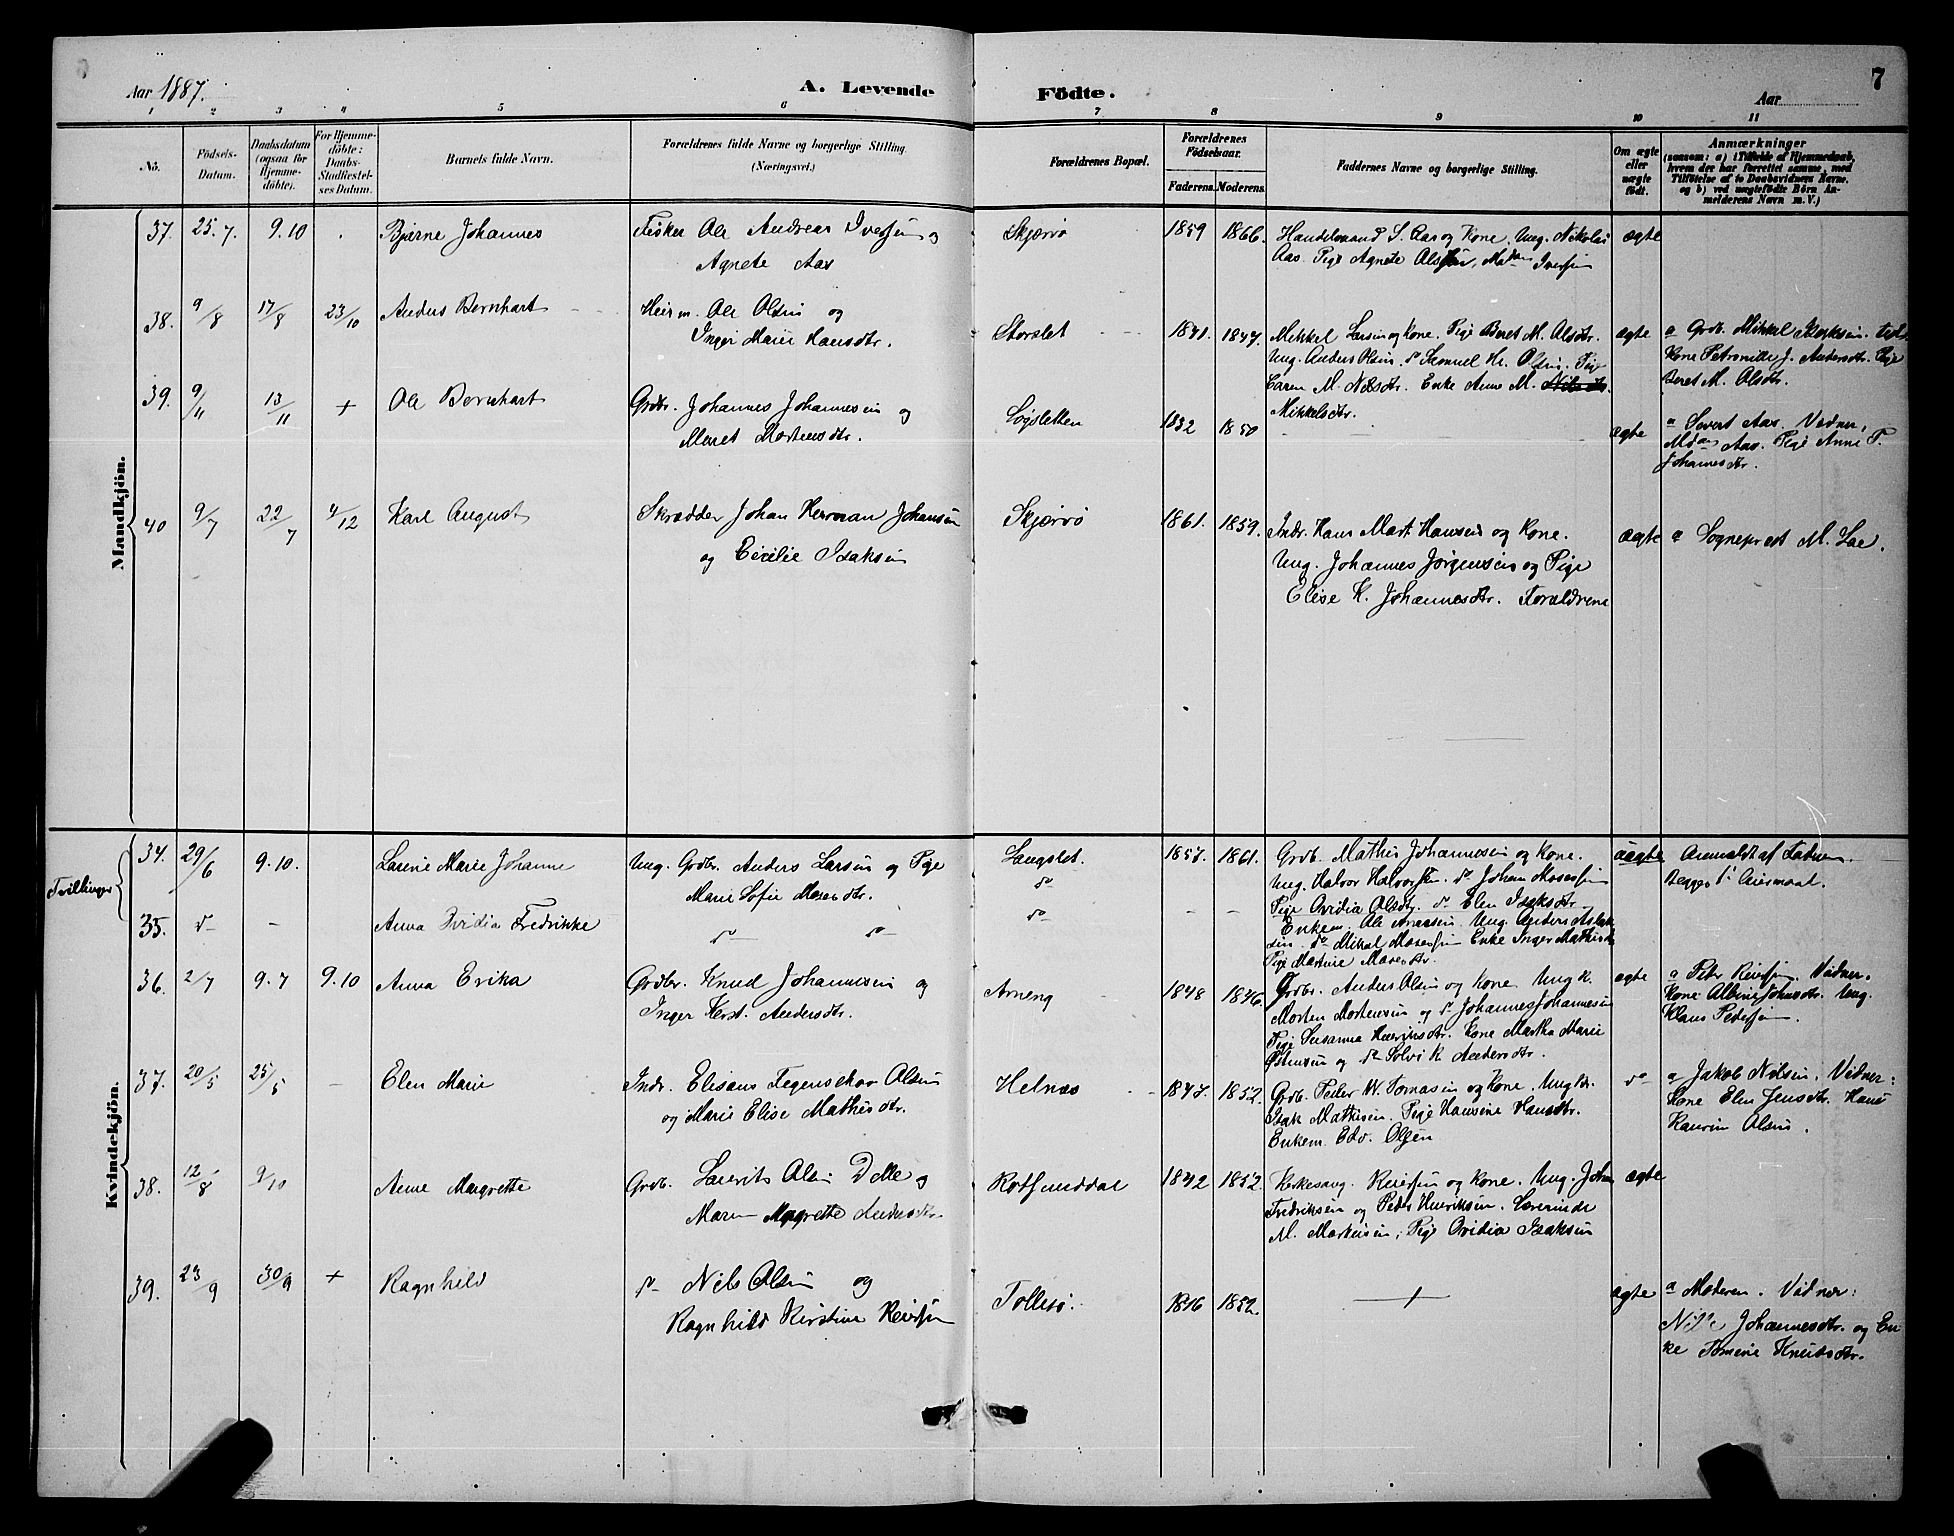 Aar 1887.
A. Levende Födte.
7
Aar
1 2 3 4 5 6 7 8 9 10 11
No.
Födsels-Datum.
Daabsdatum (ogsaa for Hjemmedöbte).
For Hjemmedöbte: Daabs-Stadfæstelses Datum.
Barnets fulde Navn.
Forældrenes fulde Navne og borgerlige Stilling. (Næringsvei.)
Forældrenes Bopæl.
Forældrenes Födselsaar.
Faderens. Moderens.
Faddernes Navne og borgerlige Stilling.
Om ægte eller uægte födt.
Anmærkninger
(saasom: a) i Tilfælde af Hjemmedaab, hvem der har forrettet samme, med Tilföielse af to Daabsvidners Navne. og b) ved uægtefödte Börn Anmelderens Navn m. V.)
Mandkjön.
37. 25.7. 9.10 Bjarne Johannes
Fisker Ole Andreas Iversen og
Agnete Aas
Skjærvö 1859 1866.
Handelsmand S. Aas og Kone. Ung. Nikolai
Aas. Pige Agnete Olsen,
Iversen
ægte
38. 9/8 17/8 23/10 Anders Bernhart
Ole Olsen og
Inger Marie Hansdtr.
Storslet 1841. 1847.
Mikkel Larsen og Kone. Pige Beret M. Olsdtr.
Ung. Anders Olsen. do Samuel Hr. Olsen. Pige
Caren M. Nilsdtr. Enke Anne M. Nilsdtr.
Mikkelsdtr.
ægte
a Grdb. Mikkel
Kone Petronille J. Andersdtr. Pige
Beret M. Olsdtr.
39. 9/11 13/11 + Ole Bernhart
Grdbr. Johannes Johannesen og
Meret Mortensdtr.
Sogsletten 1832 1850
ægte
a Severt Aas. Vidner,
Aas. Pige Anne P.
Johannesdtr.
40 9/7 22/7 4/12 Karl August
Skrædder Johan Herman Johansen
og Cicilie Isaksen
Skjærvö 1861. 1859.
Indr. Hans Mart. Hansen og Kone.
Ung. Johannes Jörgensen og Pige
Elise K. Johannesdtr. Forældrene
ægte
a Sogneprest M. Lae.
Kvindekjön.
Tvillinger
34. 29/6 9.10. Larine Marie Johanne
Ung. Grdbr. Anders Larsen og Pige
Marie Sofie Mosesdtr.
Langslet. 1857. 1861.
do
Grdb. Mathis Johannesen og Kone.
Ung. Halvor Halvorsen. do Johan Mosesen
Pige Ovidia Olsdtr. do Elen Isaksdtr.
uægte
Anmeldt af Fadren.
Begges 1ste Leiermaal.
35. do - Anna Ovidia Fredrikke
do do
do - -
Enkem. Ole Arnesen. Ung. Anders Aslak
sen. do Mikal Mosesen Enke Inger Mathisdtr.
Pige Martine Mosesdtr.
36. 2/7 9.7 9.10 Anna Erika
Grdbr. Knud Johannesen og
Inger Kirst. Andersdtr.
Arneng 1848 1846.
Grdbr. Anders Olsen og Kone. Ungk.
Morten Mortensen og do Johannes Johannesen
Pige Susanna Henriksdtr. Kone Martha Marie
Östensen og do Solvi K. Andersdtr.
ægte
a Peter Reiersen. Vidner.
Kone Albine Johnsdtr. Ung.
Klaus Pedersen.
37. 20/5 25/5 - Elen Marie
Indr. Elisans Tegenskov Olsen
og Marie Elise Mathisdtr.
Helnæs 1847. 1852.
Grdb. Peder W. Tomasen og Kone. Ungkr.
Isak Mathisen. Pige Hansine Hansdtr.
Enkem. Edv. Olsen
do
a Jakob Nilsen. Vidner:
Kone Elen Jensdtr. Hans
Kaurin Olsen.
38. 12/8 9/10 Anne Margrette
Grdb. Laurits Olsen Dalle og
Maren Margrette Andersdtr
Rotsunddal 1842 1852.
Kirkesang. Reiersen og Kone. Ung. Johan
Fredriksen og Peder Henriksen. Lærerinde
M. Mortensen, Pige Ovidia Isaksen
ægte
39. 23/9 30/9 + Ragnhild
do Nils Olsen og
Ragnhild Kirstine Reiersen
Follesö. 1846 1852.
ægte
a Moderen. Vidner:
Johannesdtr. og En
ke Tomine Knudsdtr.